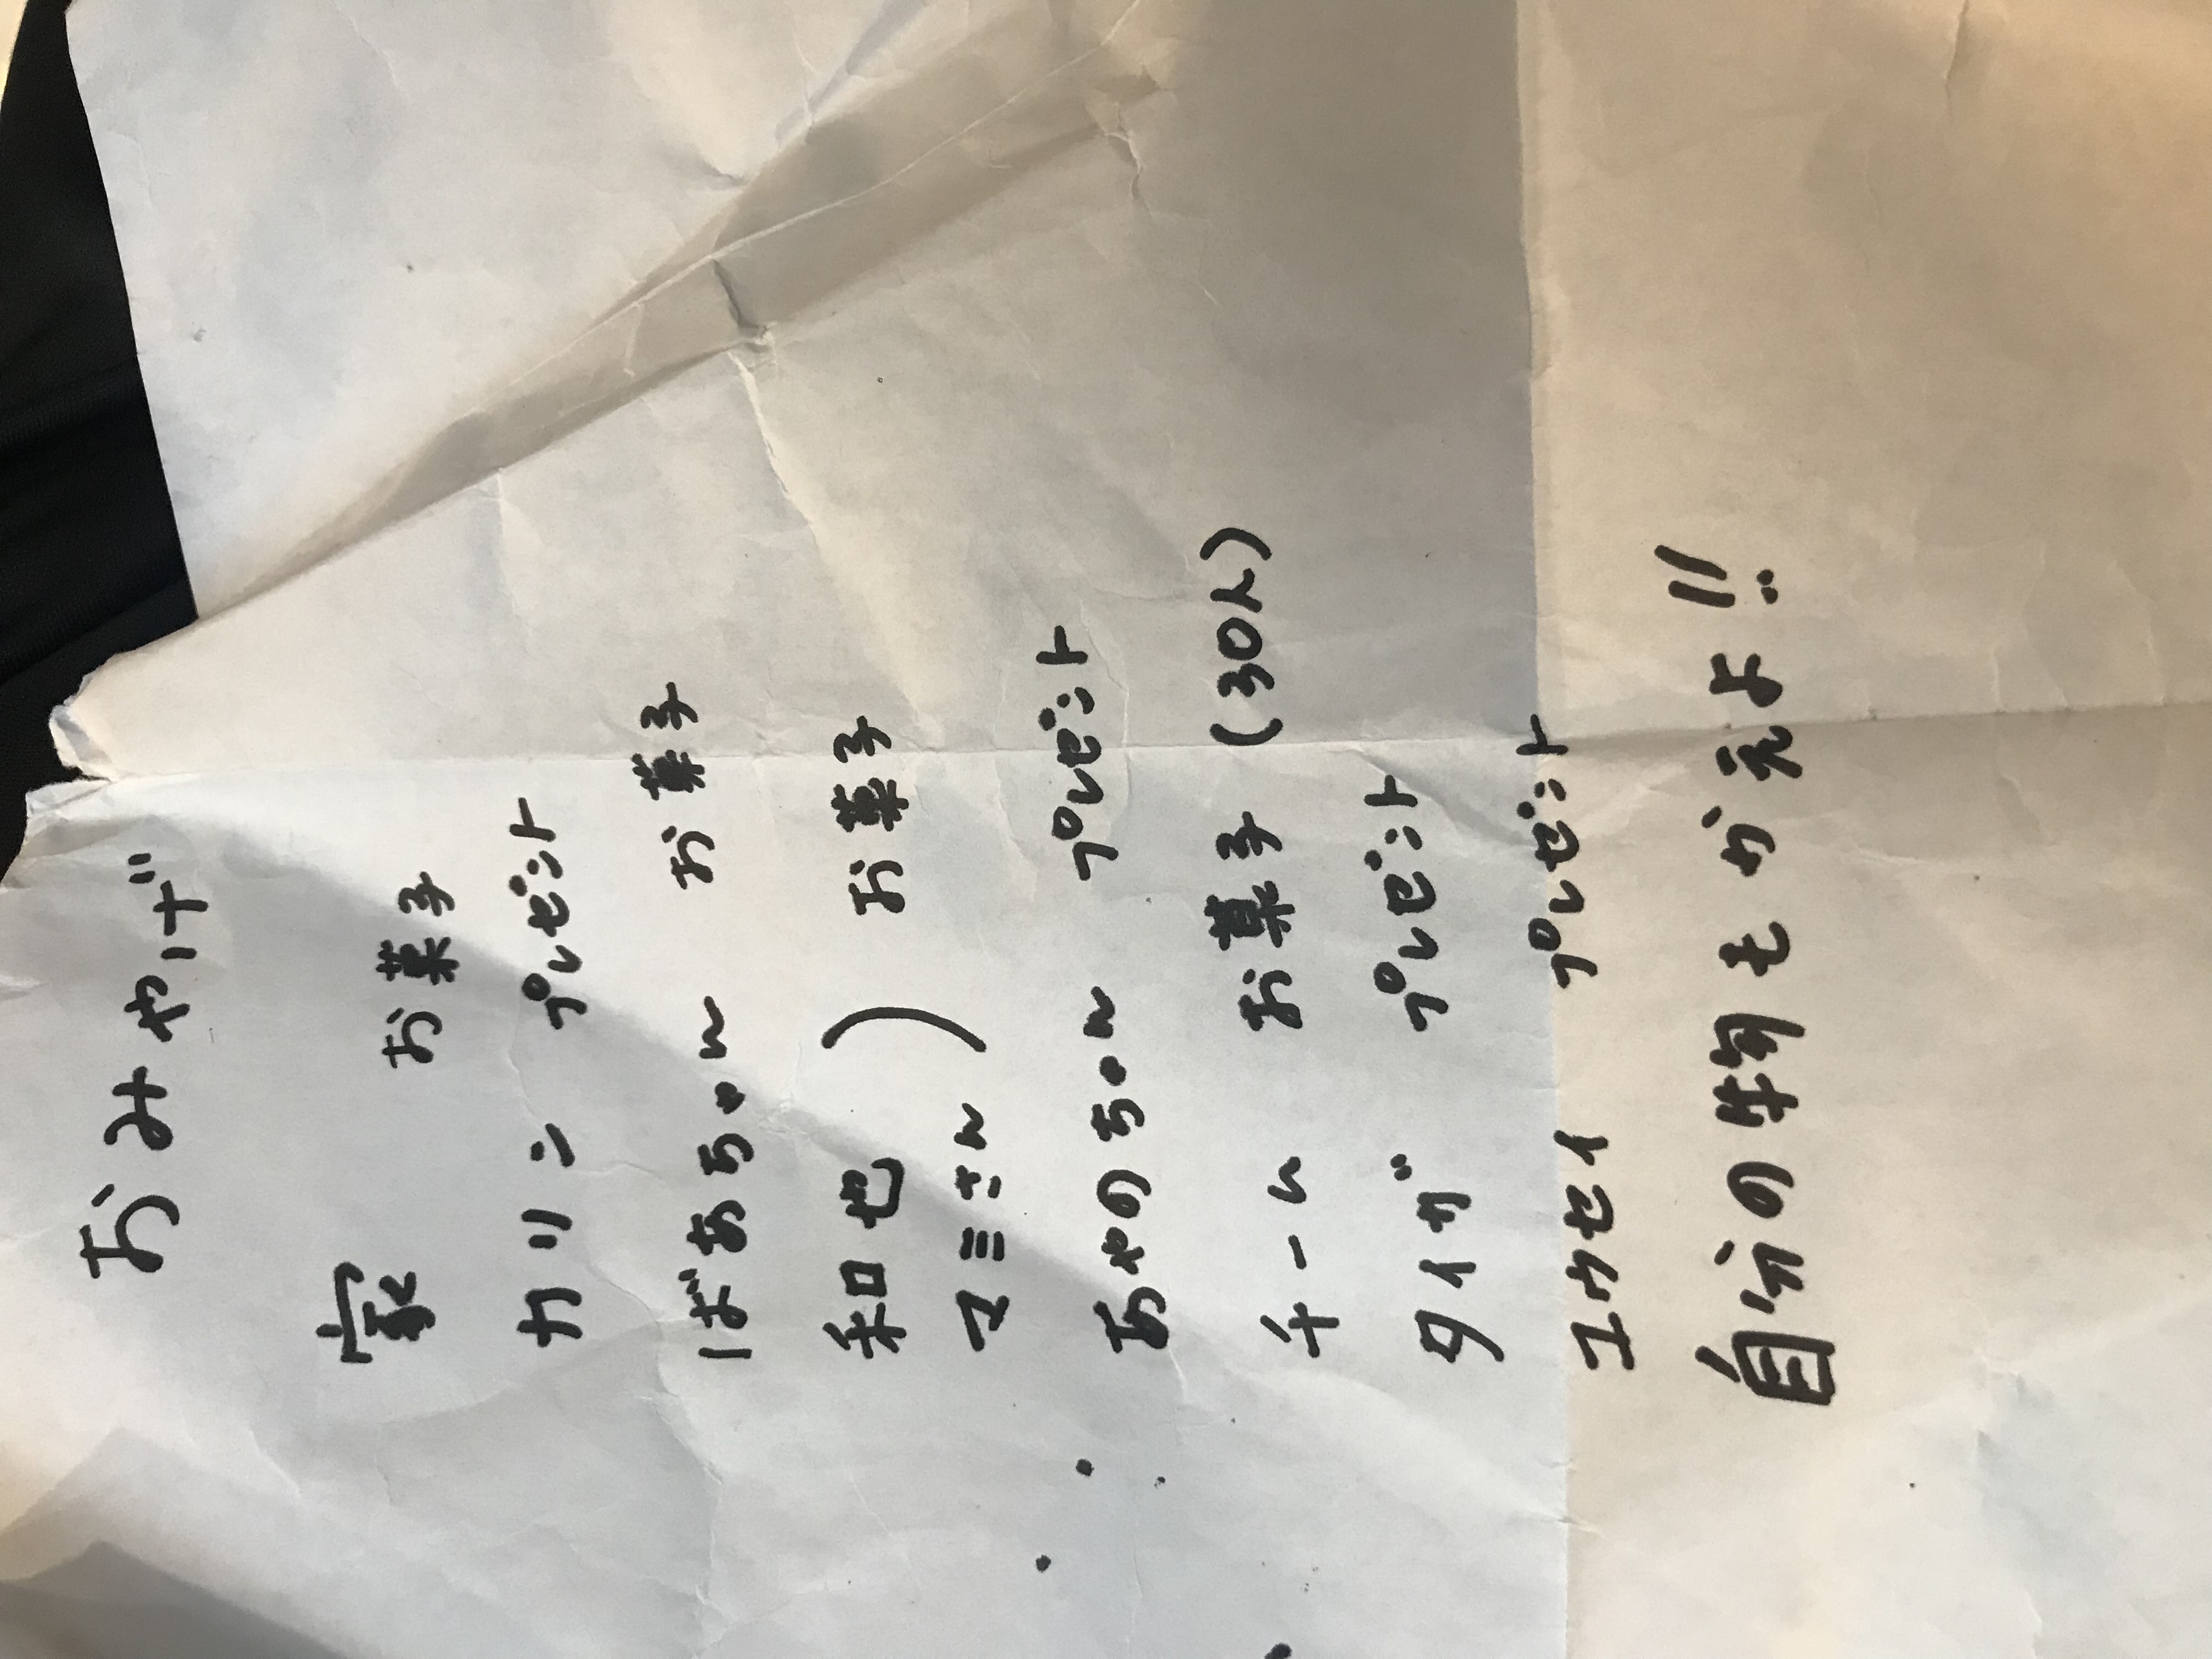 おみやげ
家 お菓子
カリン プレゼント
ばあちゃん お菓子
和也 ) お菓子
マミさん
あやのちゃん プレゼント
チーム お菓子 (30人)
タイガ プレゼント
ユウセイ プレゼント
自分の物もかえよ!!